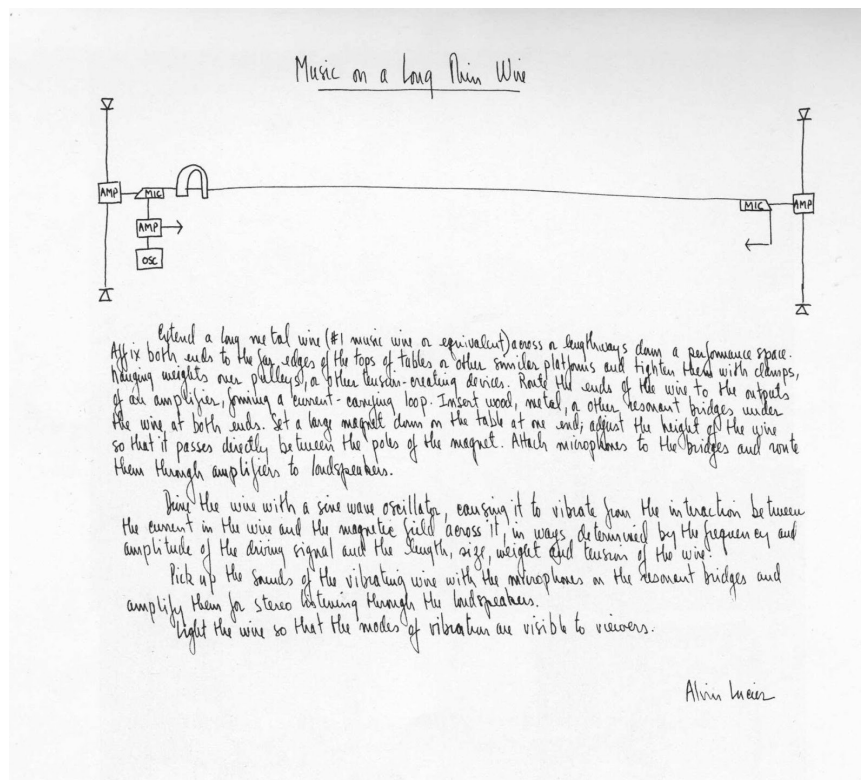 Music on a Long Thin Wire
AMP MIC MIC AMP
AMP
OSC
Extend a long metal wire (#1 music wire or equivalent) across or lengthways down a performance space.
Affix both ends to the far edges of the tops of tables or other similar platforms and tighten them with clamps,
hanging weights over pulleys, or other tension-creating devices. Route the ends of the wire to the outputs
of an amplifier, forming a current-carrying loop. Insert wood, metal, or other resonant bridges under
the wire at both ends. Set a large magnet down on the table at one end; adjust the height of the wire
so that it passes directly between the poles of the magnet. Attach microphones to the bridges and route
them through amplifiers to loudspeakers.
Drive the wire with a sine wave oscillator, causing it to vibrate from the interaction between
the current in the wire and the magnetic field across it, in ways, determined by the frequency and
amplitude of the driving signal and the length, size, weight and tension of the wire.
Pick up the sounds of the vibrating wire with the microphones on the resonant bridges and
amplify them for stereo listening through the loudspeakers.
Light the wire so that the modes of vibration are visible to viewers.
Alvin Lucier